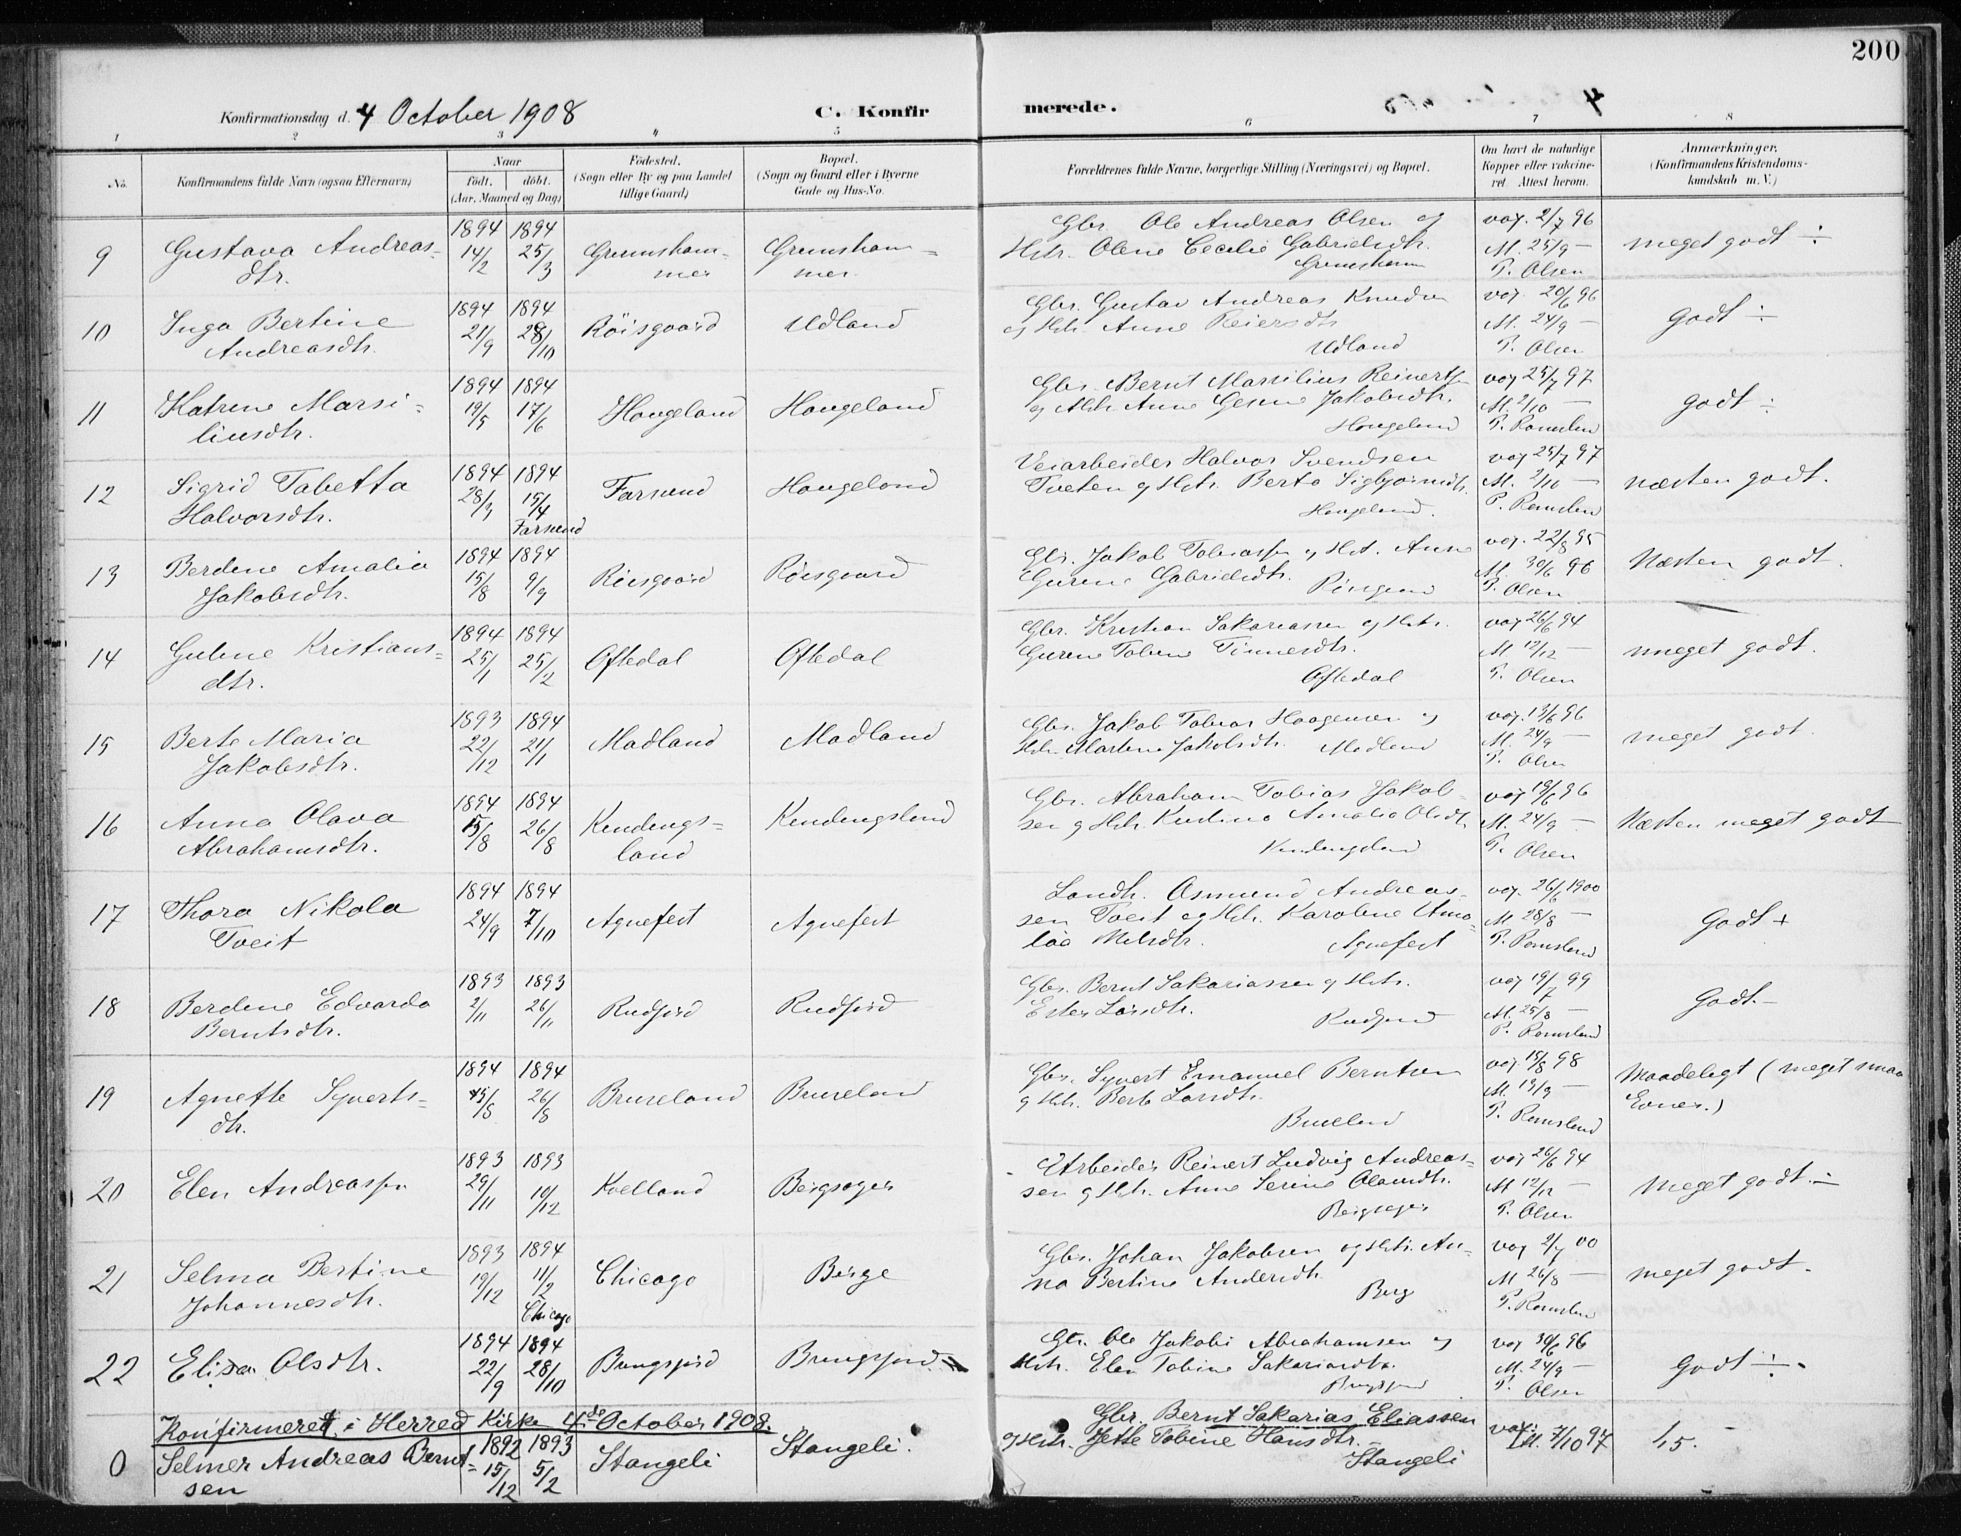 200
Konfirmationsdag d. 4 October 1908
C. Konfirmerede.
4
1 2 3 4 5 6 7 8
No. Konfirmandens fulde Navn (ogsaa Efternavn) Naar födt. döbt. (Aar, Maaned og Dag) Födested. (Sogn eller By og paa Landet tillige Gaard) Bopæl. (Sogn og Gaard eller i Byerne Gade og Hus-No. Forældrenes fulde Navne, borgerlige Stilling (Næringsvei) og Bopæl. Om havt de naturlige Kopper eller vakcineret. Attest herom. Anmærkninger. (Konfirmandens Kristendomskundskab m. V.)
9 Gustava Andreas- 1894 14/2 1894 25/3 Grumsham- Grumsham- Gbr. Ole Andreas Olsen og vag. 2/7 96 meget godt ÷
dtr. mer mer. Hstr. Olene Cecilie Gabrielsdtr. M. 25/9 —
Grumsham P. Olsen
10 Inga Bertine 1894 21/9 1894 28/10 Röisgaard Udland Gbr. Gustav Andreas Knudsen vag. 20/6 96 godt ÷
Andreasdtr. og Hstr. Anne Reiersdtr M. 24/9 —
Udland P. Olsen
11 Katrine Marsi- 1894 19/5 1894 17/6 Haugeland Haugeland Gbr. Bernt Marsilius Reinertsen vag 25/7 97 godt ÷
liusdtr. og Hstr. Anne Gesine Jakobsdtr. M. 2/10 —
Haugeland P. Romsland
12 Sigrid Tabetta 1894 28/3 1894 15/4 Farsund Haugeland Veiarbeider Halvor Svendsen vag 25/7 97 næsten godt.
Halvorsdtr. Farsund Tveten og Hstr. Berta Sigbjörnsdtr. M. 2/10 —
Haugeland. P. Romsland
13 Berdine Amalia 1894 15/8 1894 9/9 Röisgaard Röisgaard Gbr. Jakob Tobiassen og Hst. Anne vag. 22/8 95 Næsten godt.
Jakobsdtr. Gurine Gabrielsdtr. Röisgaard M. 30/6 96
P. Olsen
14 Guline Kristians- 1894 25/1 1894 25/2 Oftedal Oftedal Gbr. Kristian Sakariassen og Hstr. vag 26/6 94 meget godt.
dtr. Gurine Tobine Tönnesdtr. M 12/12 —
Oftedal P. Olsen
15 Berte Maria 1893 22/12 1894 21/1 Madland Madland Gbr. Jakob Tobias Haagensen og vag. 13/6 96 meget godt.
Jakobsdtr. Hstr. Martine Jakobsdtr. Madland M. 24/9 —
P. Olsen
16 Anna Olava 1894 15/8 1894 26/8 Kendengs- Kendengsland Gbr. Abraham Tobias Jakob- vag 19/6 96 Næsten meget godt
Abrahamsdtr. land sen og Hstr. Amalia Olsdtr. M. 24/9 —
Kendengsland P. Olsen
17 Thora Nikola 1894 24/9 1894 7/10 Agnefest Agnefest Landh. Osmund Andreas- vag. 26/6 1900 Godt +
Tveit sen Tveit og Hstr. Karoline Ama- M 28/8 —
lie Nilsdtr. Agnefest P. Romsland
18 Berdine Edvarda 1893 2/11 1893 26/11 Rudfjord Rudfjord Gbr. Bernt Sakariassen og Hstr. vag 19/7 99 Godt. –
Berntsdtr. Ester Larsdtr. M. 25/8 —
Rudfjord P. Romsland
19 Agnethe Syverts- 1894 15/8 1894 26/8 Bruseland Bruseland Gbr. Syvert Emanuel Berntsen vag 15/8 98 Maadeligt (meget smaa
dtr. og Hstr. Berte Larsdtr. M. 19/9 — Evner.)
Bruseland P. Romsland
20 Elen Andreassen 1893 29/11 1893 10/12 Kvelland Bergsager Arbeider Reinert Ludvig Andreas- vag 26/6 94 Meget godt. ÷
sen og Hstr. Anne Serine Olavsdtr. M 12/12 —
Bergsager P. Olsen
21 Selma Bertine 1893 19/12 1894 11/2 Chicago Berge Gbr. Johan Jakobsen og Hstr. An- vag 2/7 00 meget godt.
Johannesdtr. Chicago na Bertine Andersdtr M 26/8 —
Berg P. Romsland
22 Elisa Olsdtr. 1894 22/9 1894 28/10 Bungsfjord Brungsfjord Gbr. Ole Jakobi Abrahamsen og vag 30/6 96 godt ÷.
Hstr. Elen Tobine Sakariasdtr. M. 24/9 —
P. Olsen
Konfirmeret i Herred Kirke 4de October 1908.
0 Selmer Andreas Bernt- 1892 15/12 1893 5/2 Stangeli Stangeli. Gbr. Bernt Sakarias Eliassen vag. M. 7/10 97 1,5.
sen og Hstr. Jette Tobine Hansdtr.
Stangeli